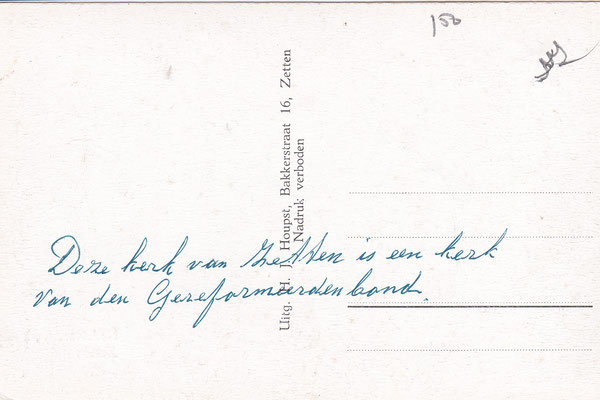 150
Uitg. H. J. Houpst, Bakkerstraat 16, Zetten
Nadruk verboden
Deze kerk van Zetten is een kerk
van den Gereformeerdenbond.